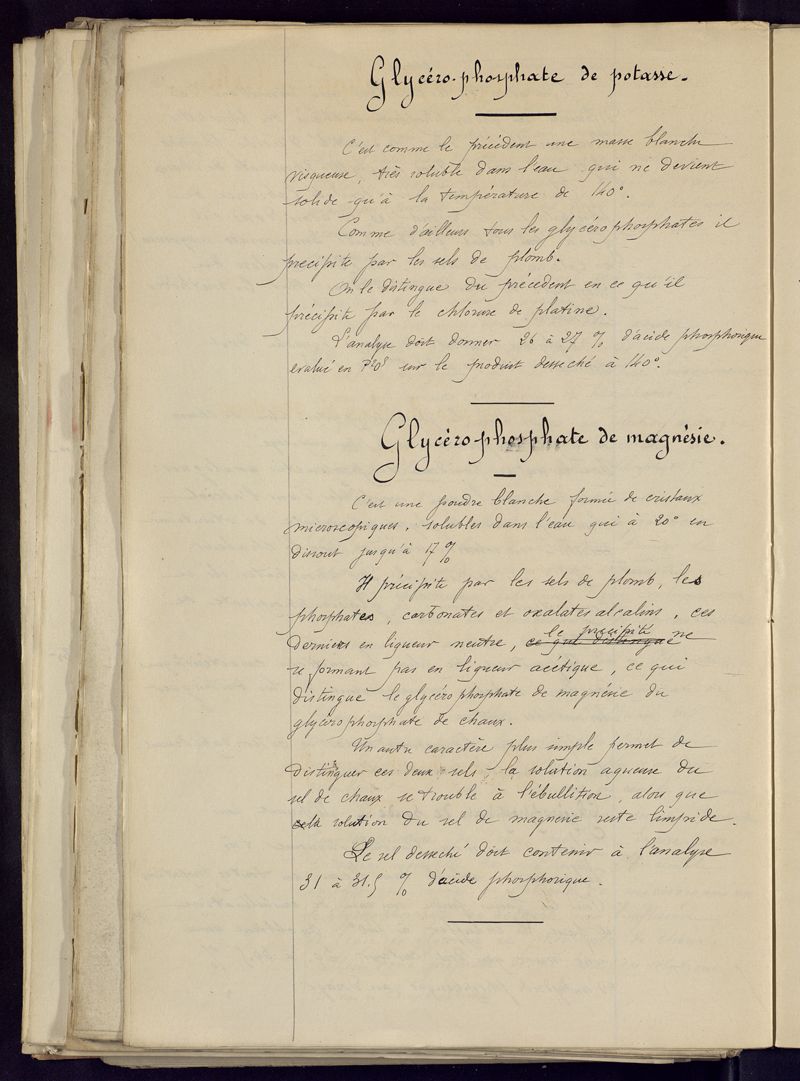 Glycéro-phosphate de potasse.
C'est comme le précédent une masse blanche
visqueuse, très soluble dans l'eau qui ne devient
solide qu'à la température de 140°.
Comme d'ailleurs tous les glycérophosphates il
precipite par les sels de plomb.
On le distingue du précédent en ce qu'il
précipite par le chlorure de platine.
L'analyse doit donner 26 à 27 % d'acide phosphorique
evalué en P²O⁵ sur le produit desseché à 140°.
Glycéro-phosphate de magnésie.
C'est une poudre blanche formée de cristaux
microscopiques, solubles dans l'eau qui à 20° en
dissout jusqu'à 17 %
Il précipite par les sels de plomb, les
phosphates, carbonates et oxalates alcalins, ces
derniers en liqueur neutre, ce qui distingue le precipité ne
se formant pas en liqueur acétique, ce qui
distingue le glycérophosphate de magnésie du
glycérophosphate de chaux.
Un autre caractère plus simple permet de
distinguer ces deux sels, la solution aqueuse du
sel de chaux se trouble à l'ébullition, alors que
la solution du sel de magnesie reste limpide.
Le sel desseché doit contenir à l'analyse
31 à 31.5 % d'acide phosphorique.